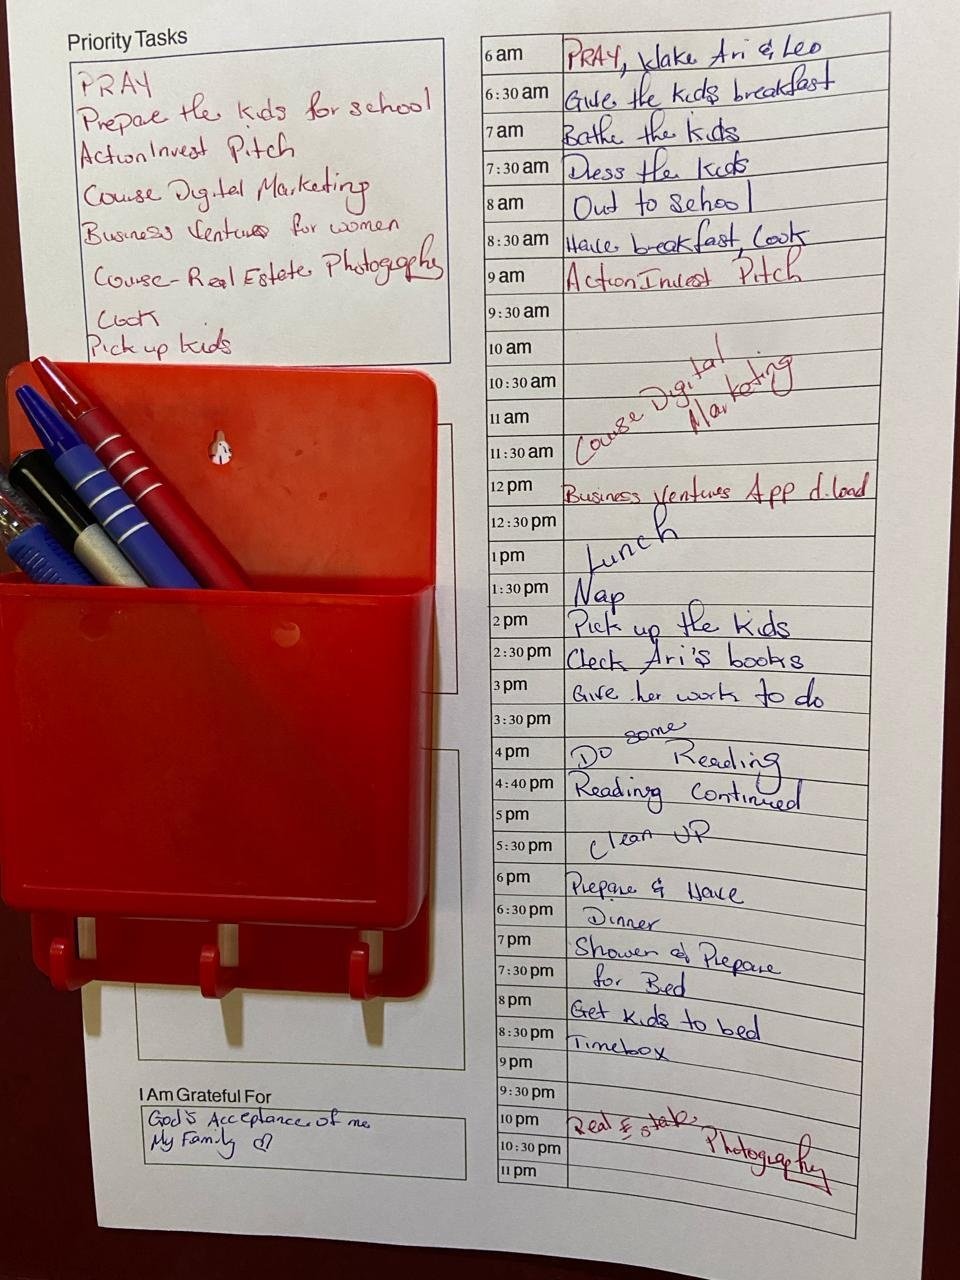 Priority Tasks
PRAY
Prepare the kids for school
Action Invest Pitch
Course Digital Marketing
Business Ventures for women
Course - Real Estate Photography
Cook
Pick up kids
6 am PRAY, Wake Ari & Leo
6:30 am Give the kids breakfast
7 am Bathe the kids
7:30 am Dress the kids
8 am Out to school
8:30 am Have breakfast, Cook
9 am Action Invest Pitch
9:30 am
10 am
10:30 am Course Digital
11 am Marketing
11:30 am
12 pm Business Ventures App d.load
12:30 pm
1 pm Lunch
1:30 pm Nap
2 pm Pick up the kids
2:30 pm Check Ari's books
3 pm Give her work to do
3:30 pm
4 pm Do some Reading
4:40 pm Reading Continued
5 pm
5:30 pm Clean UP
6 pm Prepare & Have
6:30 pm Dinner
7 pm Shower & Prepare
7:30 pm for Bed
8 pm Get kids to bed
8:30 pm Timebox
9 pm
9:30 pm
10 pm Real Estate
10:30 pm Photography
11 pm
I Am Grateful For
God's Acceptance of me
My Family